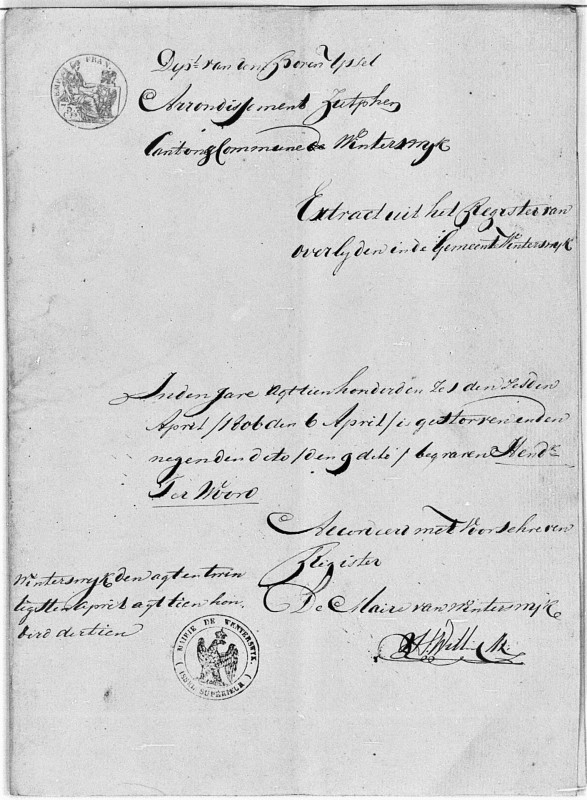 Dept. van den Boven Yssel
Arrondissement Zutphen
Canton & Commune de Winterswyk
Extract uit het Register van
overlyden in de Gemeente Winterswyk
In den Jare agttien honderd en zes den zesden
April /1806 den 6 April/ is gestorven en den
negenden dito /den 9 dito/ begraven Hendk
Ter Woord
Accordeert met voorschreven
Register
Winterswyk den agt en twin
tigsten april agttien hon
derd dertien
De Maire van Winterswyk
MAIRIE DE WENTERSWYK
ISSEL SUPERIEUR